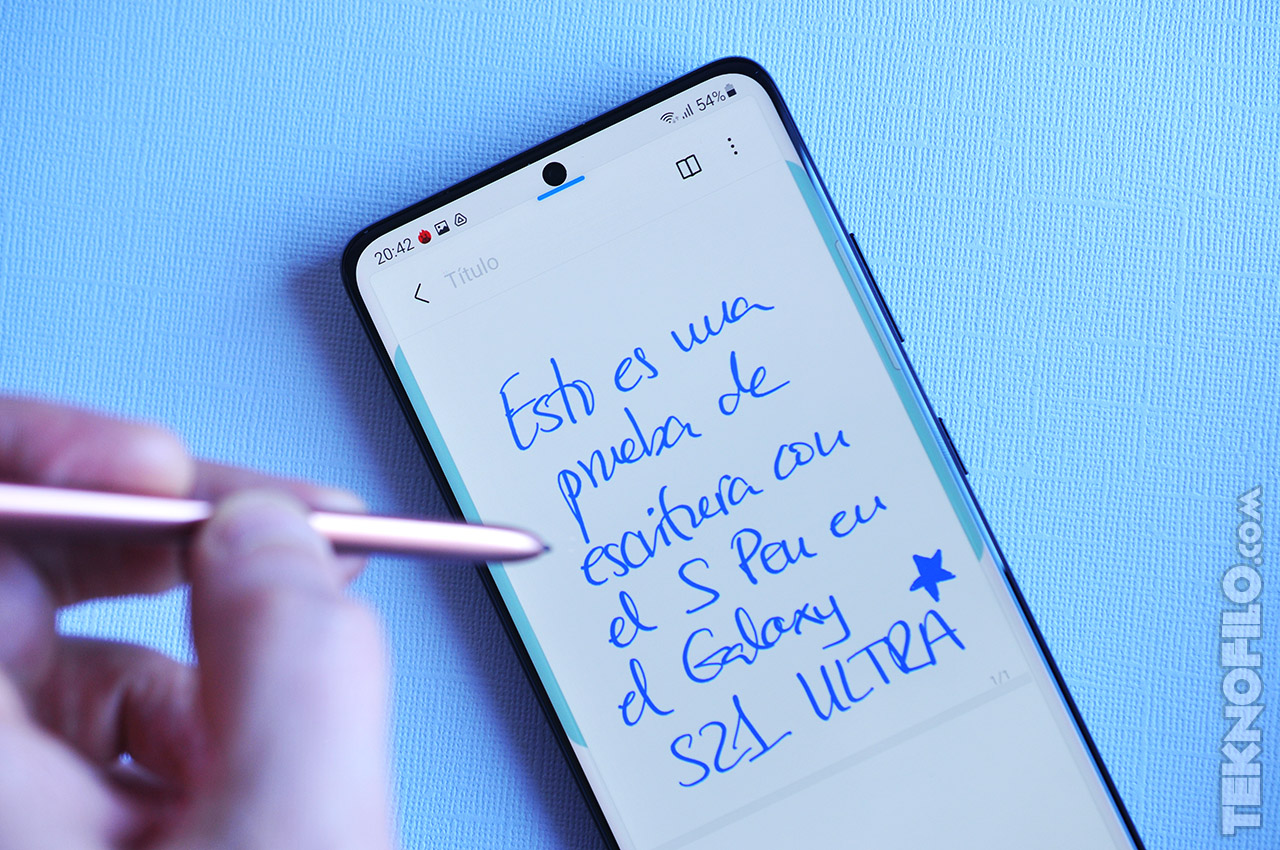 20:42 54%
Título
Esto es una
prueba de
escritura con
el S Pen en
el Galaxy
S21 ULTRA
1/1
TEKNOFILO.COM